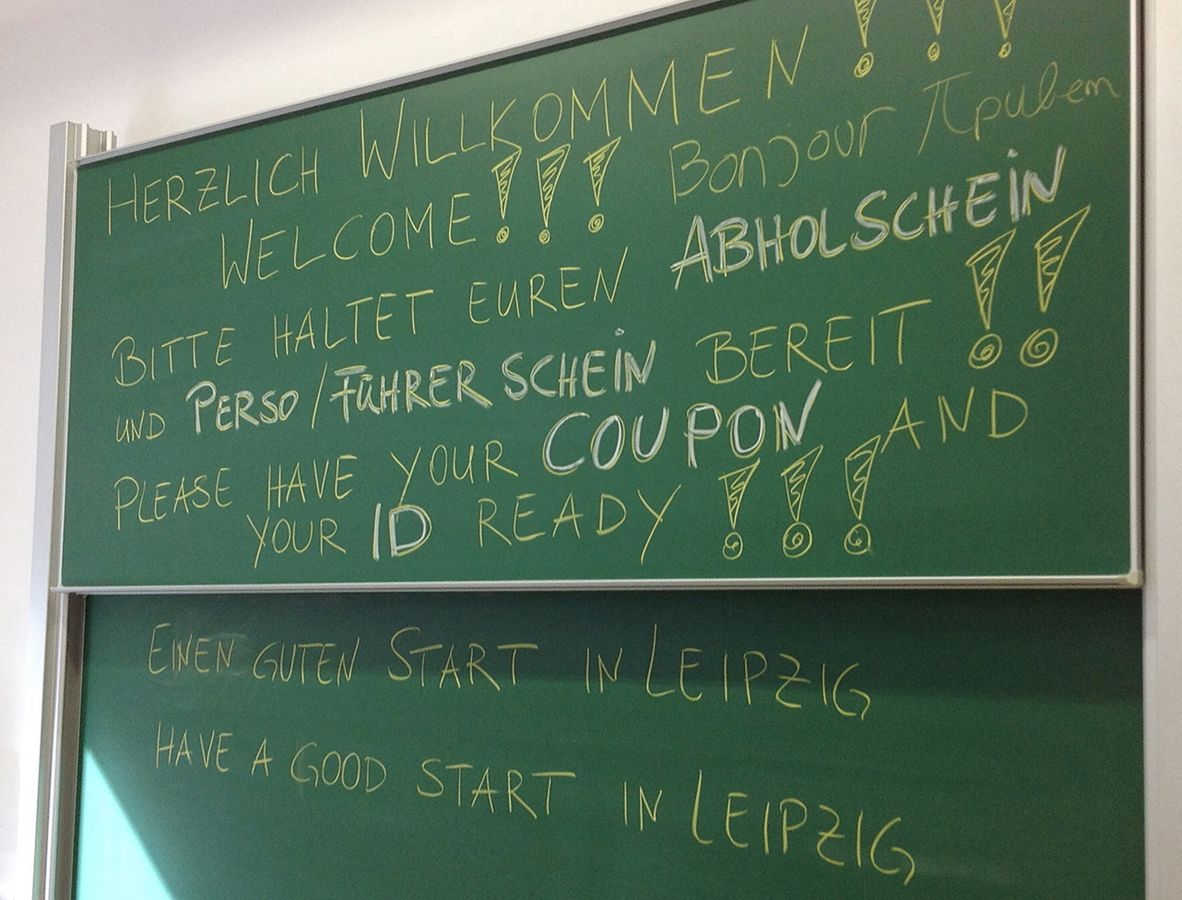 HERZLICH WILLKOMMEN !!!
WELCOME!!! Bonjour Привет
BITTE HALTET EUREN ABHOLSCHEIN
UND PERSO/FÜHRERSCHEIN BEREIT !!
PLEASE HAVE YOUR COUPON AND
YOUR ID READY !!!
EINEN GUTEN START IN LEIPZIG
HAVE A GOOD START IN LEIPZIG